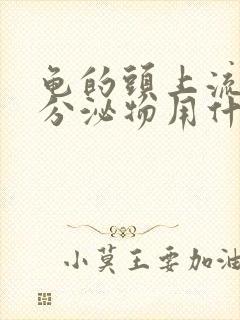 龟的頭上流
分泌物用什
小莫王要加油